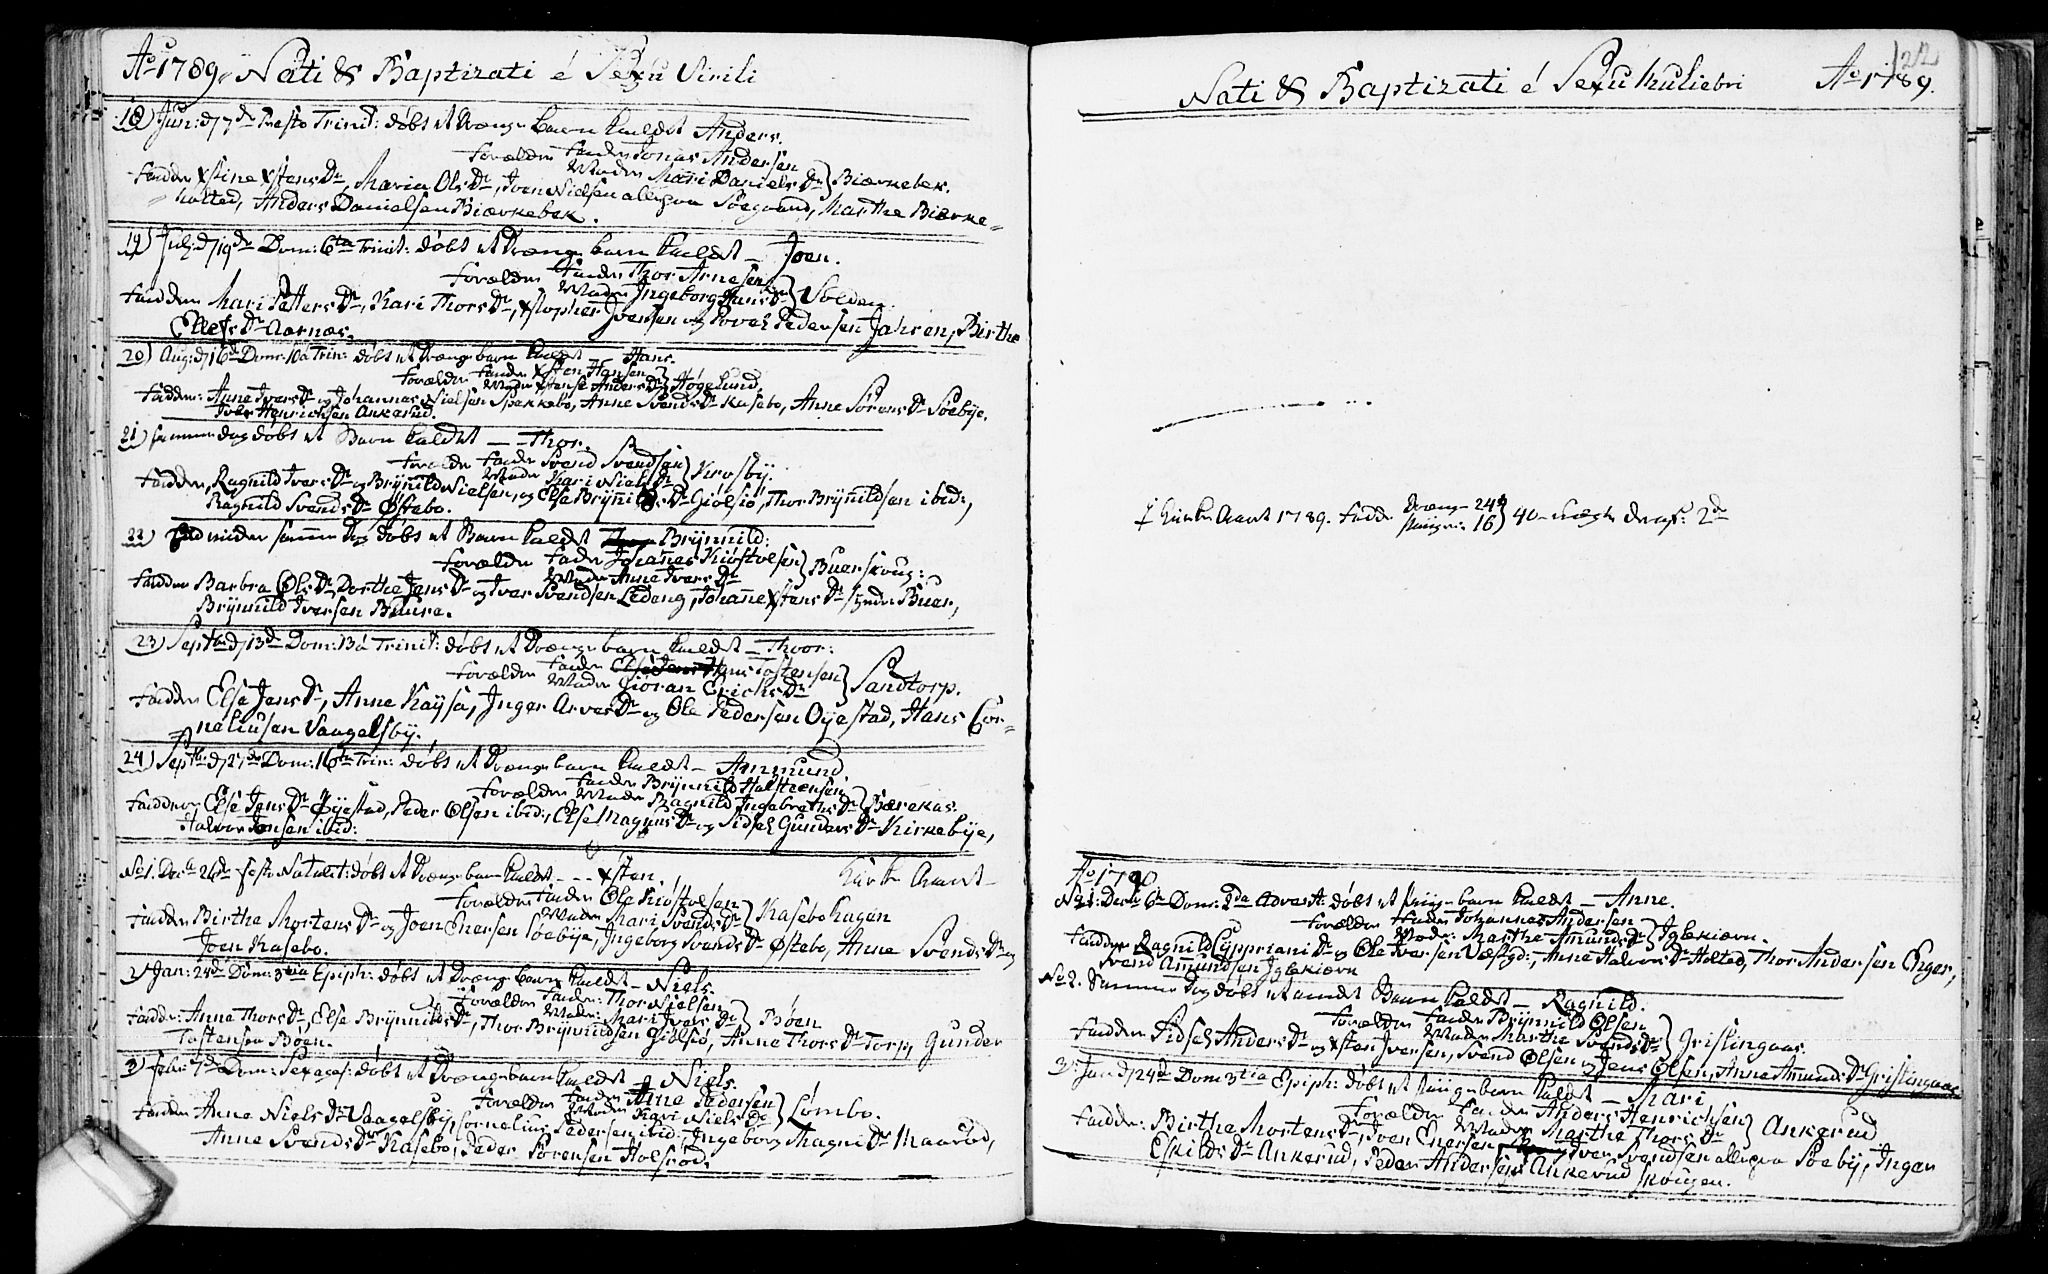 Ao 1789. Nati & Baptizati é Sexu Virili
18) Jun: d 7de Festo Trinit: døbt et Drænge barn kaldet Anders.
Forældre Fader Jonas Andersen
Moder Mari Daniels Dr } Biørnebek.
Fadder Xstine Xstens Dr, Maria Ols Dr, Iver Nielsen alle fra Søegaard, Marthe Biørne-
holted, Anders Danielsen Biørnebek.
19) Julj: d 19de Dom: 6ta Trinit: døbt et Drænge barn kaldet – Joen.
Forældre Fader Thor Arnesen
Moder Ingeborg Hans Dr } Solden.
Fadder Mari Petters Dr, Kari Thors Dr, Xstopher Iversen og Povel Pedersen Jahren, Birthe
Ellefs Dr Aarnæs.
20) Aug: d 16d Dom: 10a Trin: døbt et Drænge barn kaldet – Hans.
Forældre Fader Xsten Hansen
Moder Xstense Anders Dr } Høgelund.
Fadder: Anne Ivers Dr og Johannes Nielsen Spekkebo, Anne Svends Dr Kasebo, Anne Sørens Dr Søebye.
Iver Henrichsen Ankerud.
21) samme dag døbt et Barn kaldet – Thor.
Forældre Fader Svend Svendsen
Moder Kari Niels Dr } Krosby.
Fadder, Ragnild Ivers Dr og Brynild Nielsen, og Else Brynilds Dr Giølsiø, Thor Brynildsen ibid:,
Ragnild Svends Dr Østebo.
22) samme Dag døbt et Barn kaldet Brynnild:
Forældre Fader Johanes Kiøstolsen
Moder Anne Ivers Dr } Buerskoug:
Fadder Barbra Ols Dr, Dorthe Jens Dr og Iver Svendsen Ledeng, Johanne Xstens Dr Buer,
Brynnild Iversen Buure.
23) Septbr d 13d Dom: 13a Trinit: døbt et Drænge barn kaldet – Thoor:
Forældre Fader Hans Tostensen
Moder Giøran Erichs Dr } Sandtorp.
Fadder Else Jens Dr, Anne Kaysa, Inger Arves Dr og Ole Pedersen Oyestad, Hans Cor-
neliusen Vaagelsby.
24) Septbr: d 27de Dom: 16ta Trin: døbt et Drænge barn kaldet – Ammund.
Forældre Fader Brynnild Halstensen
Moder Ragnild Ingebreths Dr } Bærekas.
Fadder Else Jens Dr Øyestad, Peder Olsen ibid:, Else Magnus Dr og Sidsel Gunders Dr Kirkebye,
Halvor Jensen ibid:
No 1. Decbr 26d festo Nativit: døbt et Drænge barn kaldet – – – Xsten. Kirke Aaret –
Forældre Fader Ole Kiøstolsen
Moder Mari Svends Dr } Kasebo hagan
Fadder Birthe Mortens Dr og Joen Enersen Søebye, Ingeborg Svends Dr Østebo, Anne Svends Dr og
Joen Kasebo.
2) Jan: 24d Dom: 3tia Epiph: døbt et Drænge barn kaldet – Niels.
Forældre Fader: Thor Nielsen
Moder: Mari Ivers Dr } Bøen
Fadder: Anne Thors Dr, Else Brynnilds Dr, Thor Brynnildsen Giølsiø, Anne Thors Dr Torp, Gunder
Tostensen Bøen.
3) Febr: 7d Dom: Sexages: døbt et Drænge barn kaldet – Niels.
Forældre Fader Arne Pedersen
Moder Kari Niels Dr } Lømbo.
Fadder Anne Niels Dr Vaagelsby, Cornelius Pedersen ibid:, Ingeborg Magni Dr Maarud,
Anne Svends Dr Kasebo, Peder Sørensen Holsrød.
122
Nati & Baptizati é Sexu Muliebri Ao 1789.
I Kirke Aaret 1789. Fødde Drænge 24
Piiger: 16 } 40 – Uægte deraf: 2d
Ao 1790
No 1: Decbr 6te Dom: 2da Advent: døbt et Piige barn kaldet – Anne.
Forældre Fader Johannes Andersen
Moder: Marthe Amunds Dr } Iglekiærn.
Fadder Ragnild Cypriani Dr og Ole Iversen Væstgd:, Anne Halvors Dr Holted, Thor Andersen Enger,
Svend Ammundsen Iglekiærn
No 2. Samme Dag døbt et andet Barn kaldet – Ragnild.
Forældre Fader Brynnild Olsen
Moder Marthe Svends Dr } Grislingaas.
Fadder Sidsel Anders Dr og Xsten Iversen, Svend Olsen og Jens Olsen, Anne Amunds Dr Grislingaas
3) Jan d 24d Dom 3tia Epiph: døbt et Piige barn kaldet – Mari
Forældre Fader Anders Henrichsen
Moder Marthe Thors Dr } Ankerud
Fadder: Birthe Mortens Dr, Iven Enersen og Iver Svendsen alle fra Søeby, Inger
Eskilds Dr Ankerud, Peder Andersen Ankerud skougen.